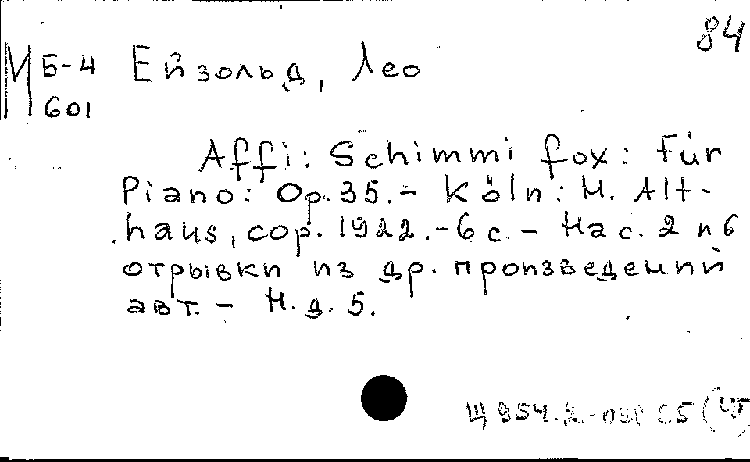 84
М Б-4 Ейзольд, Лео
601
Affi: Schimmi fox: Für
Piano: Op. 35. - Köln: H. Alt-
haus, cop. 1922. - 6 с. - На с. 2 и 6
отрывки из др. произведений
авт. - Н.д. 5.
Щ 954.2-